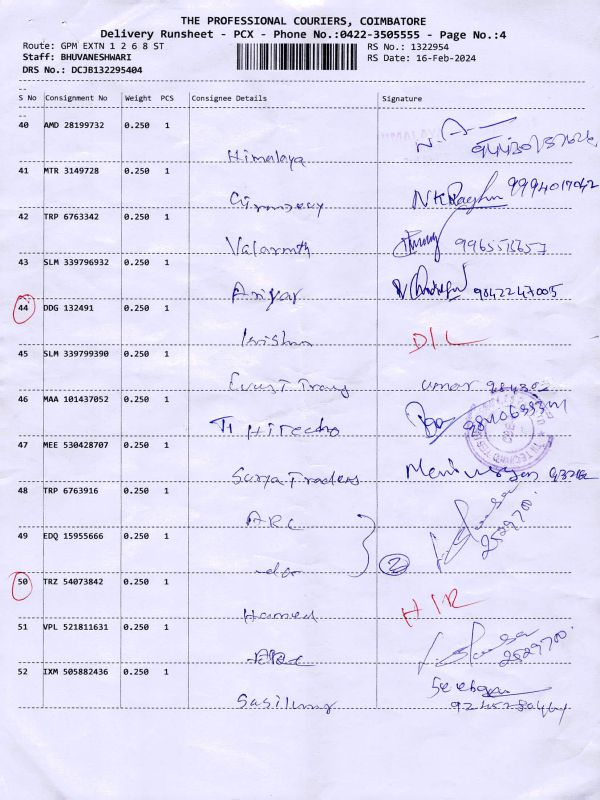 THE PROFESSIONAL COURIERS, COIMBATORE
Delivery Runsheet - PCX - Phone No.:0422-3505555 - Page No.:4
Route: GPM EXTN 1 2 6 8 ST
RS No.: 1322954
Staff: BHUVANESHWARI
RS Date: 16-Feb-2024
DRS No.: DCJB132295404
S No Consignment No Weight PCS Consignee Details Signature
40 AMD 28199732 0.250 1
Himalaya
41 MTR 3149728 0.250 1
9994017042
42 TRP 6763342 0.250 1
Valarmth
43 SLM 339796932 0.250 1
9842247005
Ariyar
44 DDG 132491 0.250 1
Krishna D/L
45 SLM 339799390 0.250 1
umar
46 MAA 101437052 0.250 1
TI HiTechs
47 MEE 530428707 0.250 1
Surya Traders
48 TRP 6763916 0.250 1
ARC
2529700
49 EDQ 15955666 0.250 1
-do-
2
50 TRZ 54073842 0.250 1
Hamed
51 VPL 521811631 0.250 1
2529700
52 IXM 505882436 0.250 1